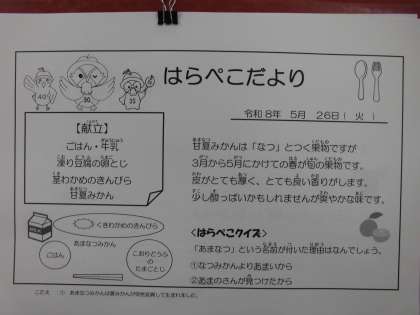 はらぺこだより
令和8年 5月 26日(火)
【献立】
ごはん・牛乳
凍り豆腐の卵とじ
茎わかめのきんぴら
甘夏みかん
甘夏みかんは「なつ」とつく果物ですが
3月から5月にかけての春が旬の果物です。
皮がとても厚く、とても良い香りがします。
少し酸っぱいかもしれませんが爽やかな味です。
くきわかめのきんぴら
あまなつみかん
ごはん
こおりとうふの
たまごとじ
<はらぺこクイズ>
「あまなつ」という名前が付いた理由はなんでしょう。
①なつみかんよりあまいから
②あまのさんが見つけたから